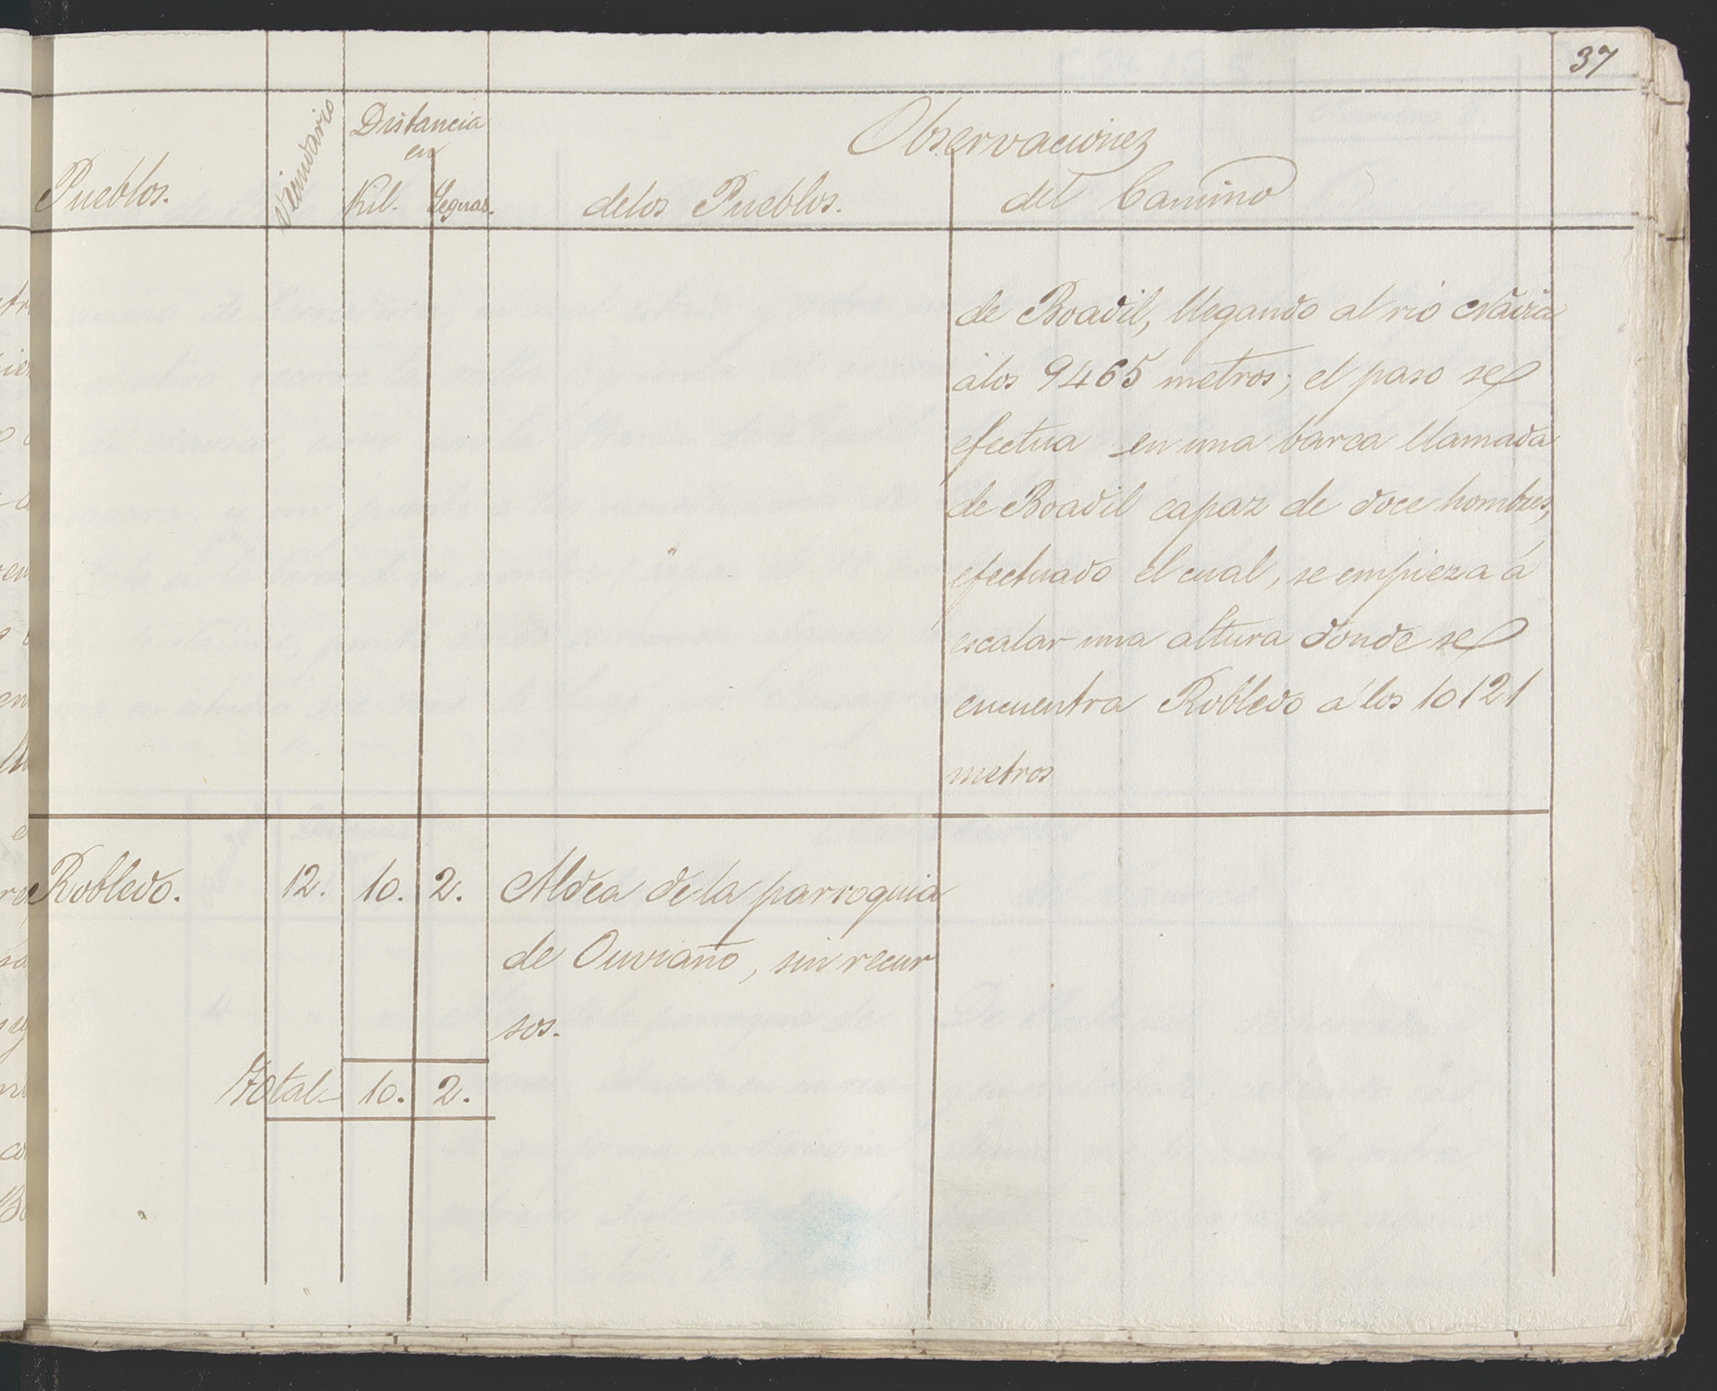 37
Pueblos.
Vecindario
Distancia
en
Kil. Leguas.
Observaciones
de los Pueblos.
del Camino
de Boadil, llegando al rio Návia
á los 9465 metros; el paso se
efectua en una barca llamada
de Boadil capaz de doce hombres,
efectuado el cual, se empieza á
escalar una altura donde se
encuentra Robledo á los 10121
metros
Robledo. 12. 10. 2. Aldea de la parroquia
de Ouviaño, sin recur
sos.
Total 10. 2.